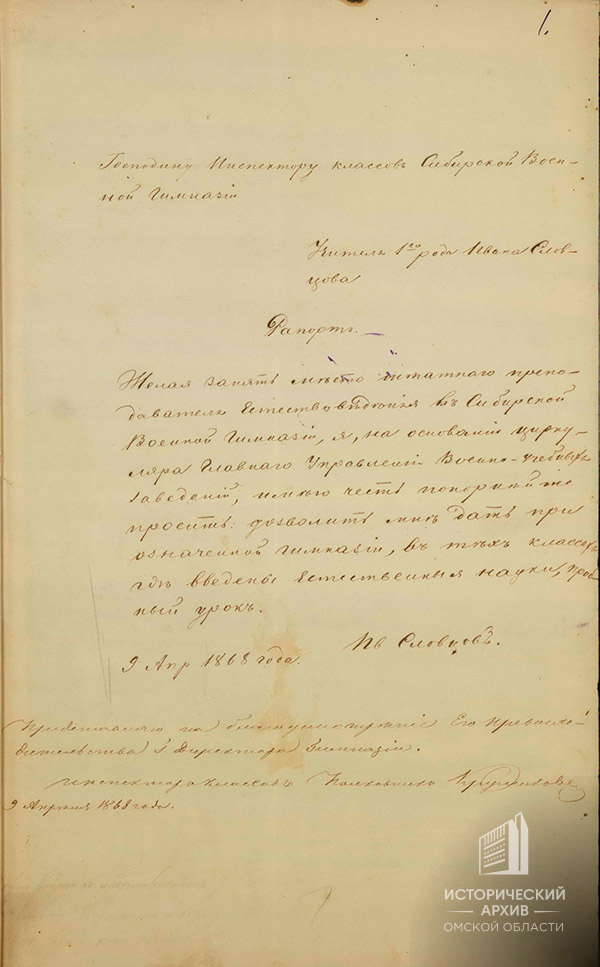 1.
Господину Инспектору классовъ Сибирской Воен-
ной Гимназіи
Учителя 1го рода Ивана Слов-
цова
Рапортъ.
Желая занять мѣсто штатнаго препо-
давателя Естествовѣдѣнія въ Сибирской
Военной Гимназіи, я, на основаніи цирку-
ляра Главнаго Управленія Военно-Учебныхъ
Заведеній, имѣю честь покорнѣйше
просить: дозволить мнѣ дать при
означенной гимназіи, въ тѣхъ классахъ
гдѣ введены Естественныя науки, проб-
ный урокъ.
Ив Словцовъ.
9 Апр 1868 года.
Представляю на благоусмотрѣніе Его Превосхо-
дительства Г Директора Гимназіи.
Инспекторъ классовъ Полковникъ
9 Апрѣля 1868 года.
ИСТОРИЧЕСКИЙ
АРХИВ
ОМСКОЙ ОБЛАСТИ